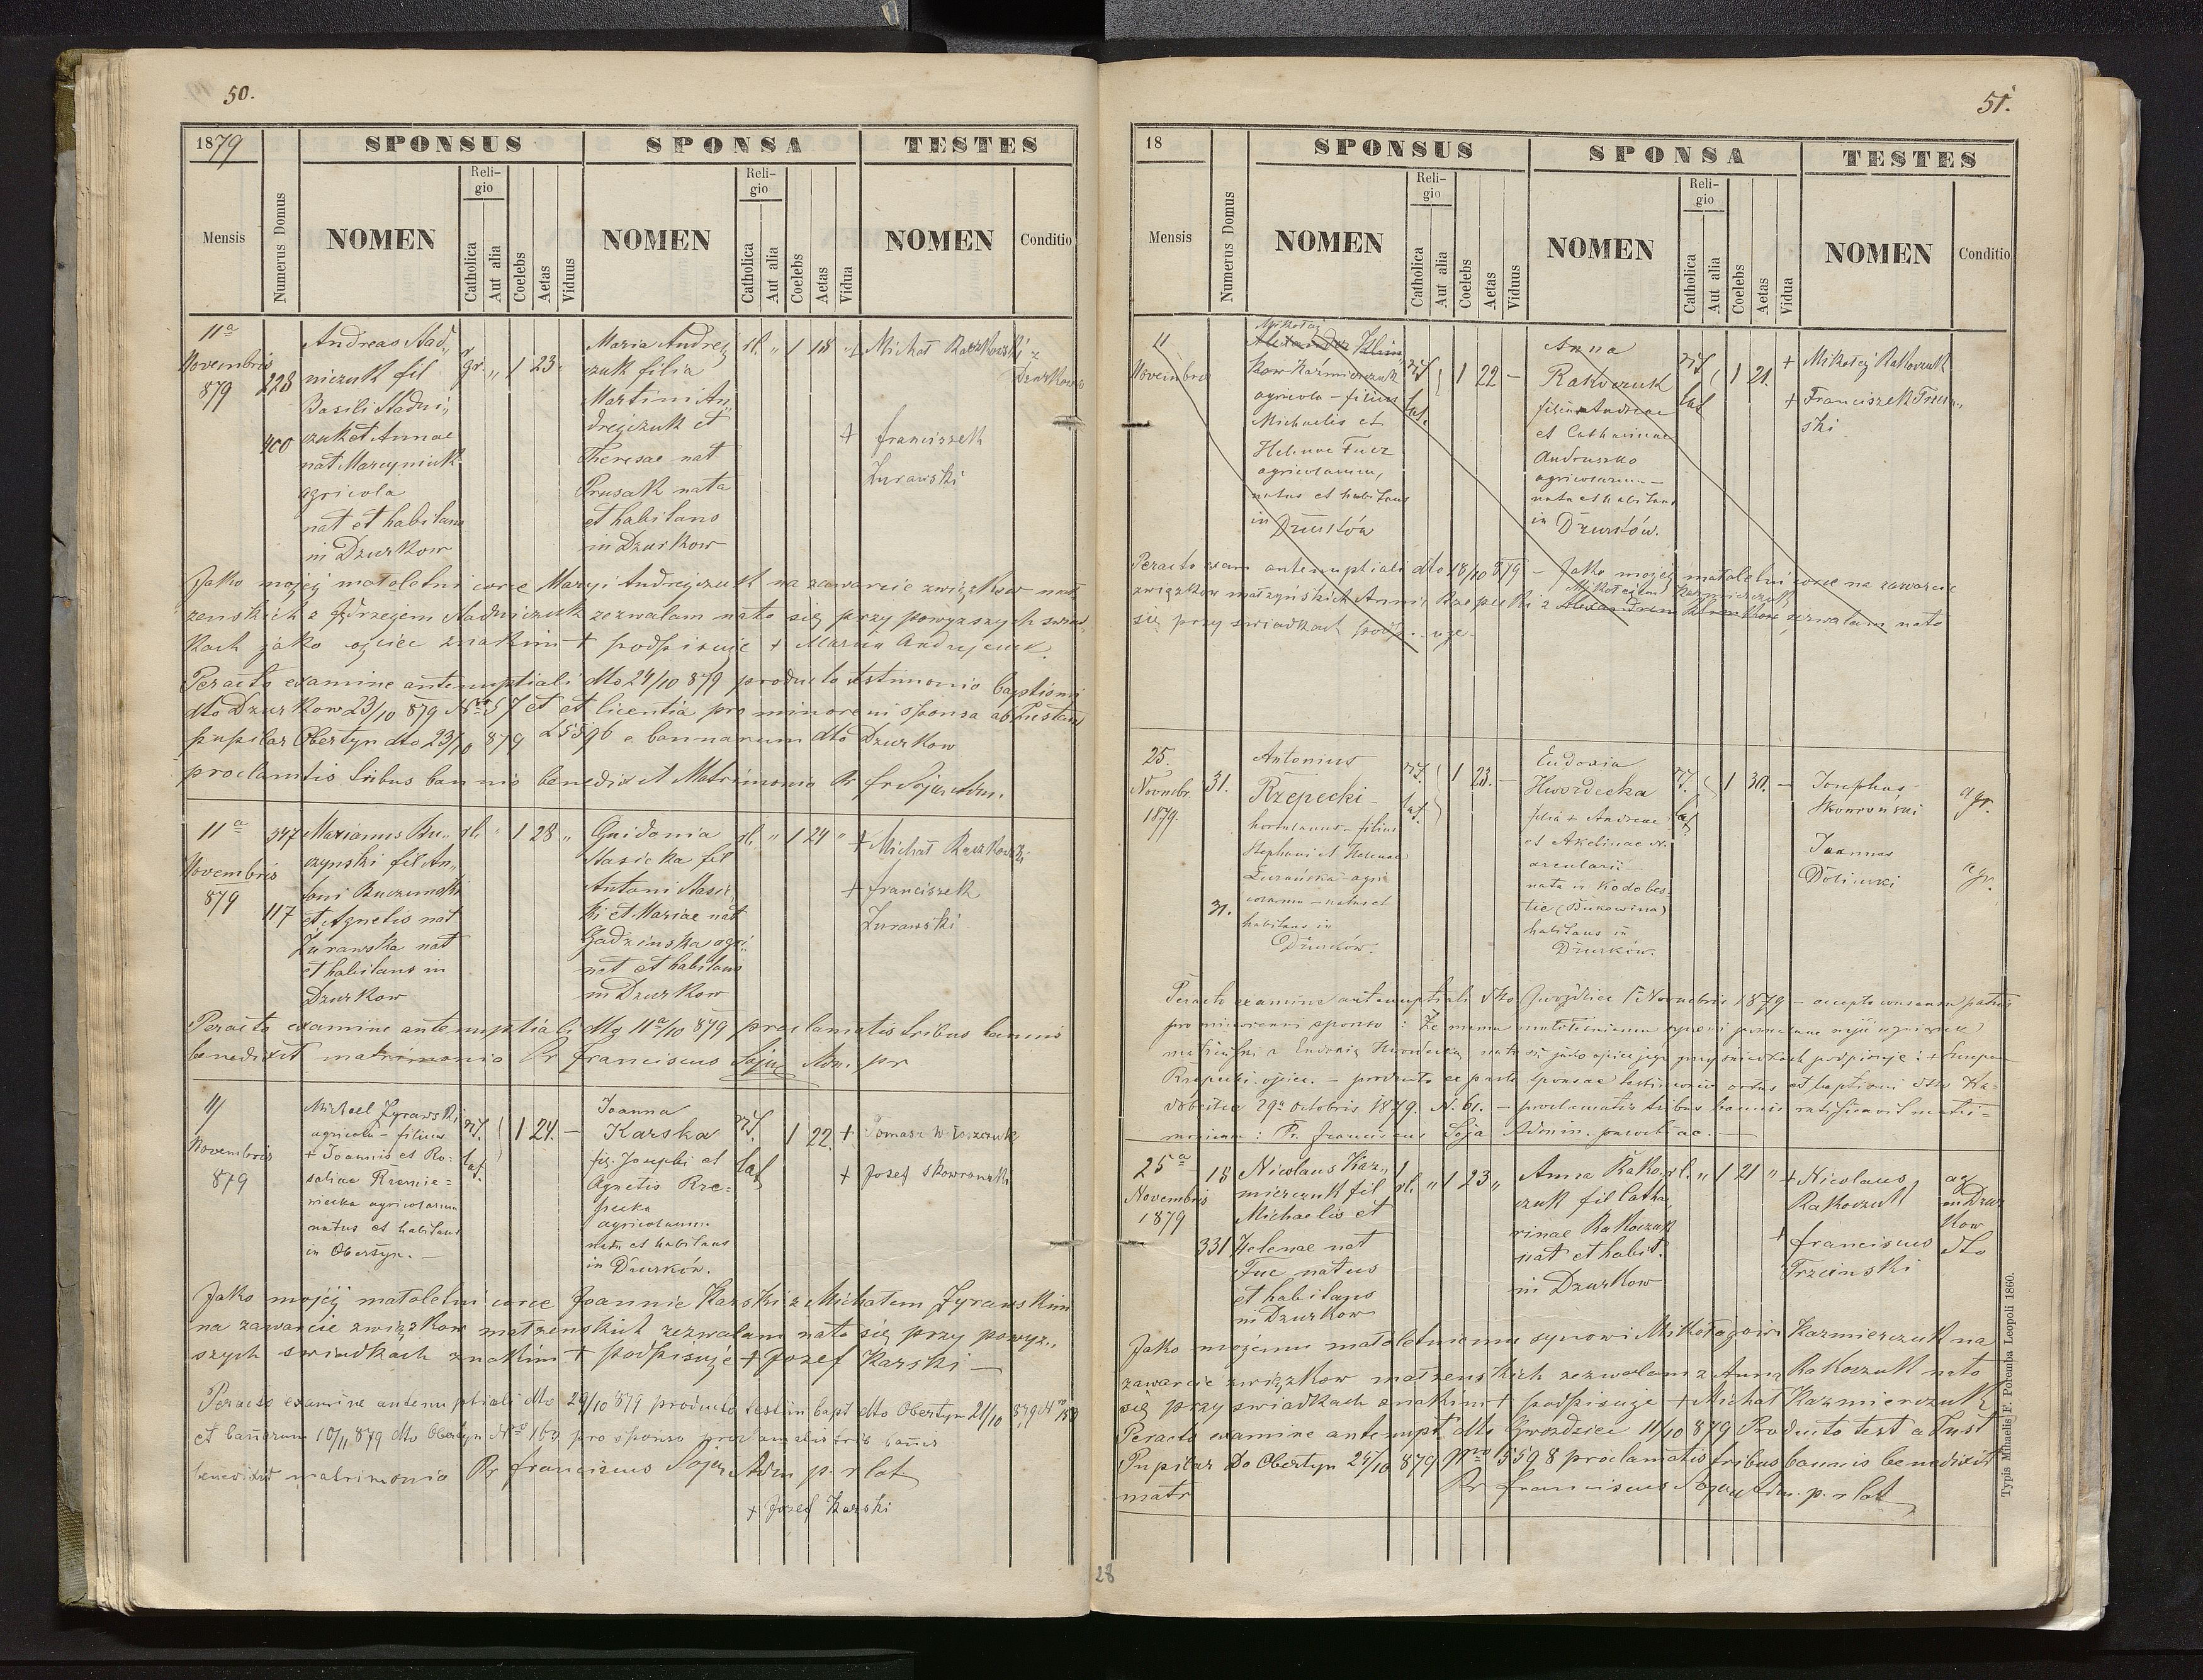 50.
1879
SPONSUS
SPONSA
TESTES
Mensis
Numerus Domus
NOMEN
Religio
Catholica
Aut alia
Coelebs
Aetas
Viduus
NOMEN
Religio
Catholica
Aut alia
Coelebs
Aetas
Vidua
NOMEN
Conditio
11a
Novembris
879
228
400
Andreas
niczuk fil
Basili
czuk et Annae
nat Marcyniuk
agricola
nat et habitans
in Dzurkow
gr. " 1 23
Maria Andrej
czuk filia
Martini An,,
drejczuk et
Theresae nat
Prusak nata
et habitans
in Dzurkow
rl. " 1 18
+ Michał Raczkowski z
Dzurkowa
+ franciszek
Żurawski
Jako mojej małoletni corce Maryi Andrejczuk na zawarcie związkow mał
zenskich z zezwalam nato się przy powyzszych swiad
kach jako ojciec znakim + podpisuje + Marcin Andrejczuk
Peracto examine antenuptiali dto 24/10 879 producto testimonio baptismi
dto Dzurkow 23/10 879 No 57 et et licentia pro minoreni sponsa ab
pupilar Obertyn dto 23/10 879 bannarum dto Dzurkow
proclamatis tribus bannis benedixit Matrimonio Pr fr Soja Adm.
11a
Novembris
879
347
117
Marianus Bu,,
czynski fil An,,
toni Buczynski
et Agnetis nat
Żurawska nat
et habitans in
Dzurkow
rl. " 1 28 "
Stasicka fil
Antoni Stasic
ki et Mariae nat
nat et habitans
in Dzurkow
rl. " 1 24 "
+ Michał Raczkowski
+ franciszek
Żurawski
Peracto examine antenuptiali dto 11a/10 879 proclamatis tribus bannis
benedixit matrimonio Pr franciscus Soja Adm. pr
11/
Novembris
879
Michael Żyrawski
agricola - filius
+ Joannis et Ro=
saliae Krzemie=
niecka agricolarum
natus et habitans
in Obertyn. -
rit. lat. 1 24. -
Joanna
Karska
fil. Josephi et
Agnetis Rze=
pecka
agricolarum
nata et habitans
in Dżurków.
rit. lat. 1 22.
+ Tomasz
+ Jozef Skowronski
Jako mojéj małoletni corce Joannie Karski z Michałem Żyrawskim
na zawarcie związkow małzenskich zezwalam nato się przy powyz,,
szych swiadkach znakim + podpisuje + Jozef Karski -
Peracto examine antenuptiali dto 24/10 879 producto testim bapt dto Obertyn 21/10 879
et bannarum 10/11 879 dto Obertyn No 160 pro sponso proclamatis trib bannis
benedixit matrimonio Pr franciscus Soja Adm p. r lat
+ Jozef Karski
51.
18
SPONSUS
SPONSA
TESTES
Mensis
Numerus Domus
NOMEN
Religio
Catholica
Aut alia
Coelebs
Aetas
Viduus
NOMEN
Religio
Catholica
Aut alia
Coelebs
Aetas
Vidua
NOMEN
Conditio
11
Novembris
Mikołaj
Alexander Klim
kow Kaźmierczuk
agricola - filius
Michaelis et
Helenae Fucz
agricolarum,
natus et habitans
in Dżurków
rit. lat. 1 22 -
Anna
Rakoczuk
filia Andreae
et Catharinae
Andruszko
agricolarum -
nata et habitans
in Dżurków.
rit. lat. 1 21.
+ Mikołaj Rakoczuk
+ Franciszek Trzcin,,
ski
Peracto exam antenuptiali dto 18/10 879 - Jako mojéj małoletni corce na zawarcie
Mikołajem Kaźmierczuk
związkow małzyńskich Anni Rzepecki z Alexandrem Klimkow zezwalam nato
się przy swiadkach
25.
Novembr.
1879.
31.
31.
Antonius
Rzepecki -
hortulanus - filius
Stephani et Helenae
Żurawska agri
colarum - natus et
habitans in
Dżurków.
rit. lat. 1 23. -
Eudoxia
Hwozdecka
filia + Andreae
et Akelinae N.
arcularii -
nata in Kadobes-
tie (Bukowina)
habitans in
Dżurków.
rit. lat. 1 30. -
Josephus
Skowroński
agr.
Joannes
Doliński
agr.
Peracto examine antenuptiali dto Gwoździec 1 Novembris 1879 - accepto consensu patris
pro minorenni sponso :
Rzepecki ojciec. - producto ex parte sponsae testimonio ortus et baptismi dto Ka=
dobestie 29a Octobris 1879. N. 61. - proclamatis tribus bannis ratificavit matri=
monium : Pr. franciscus Soja Admin. parochiae. -
25a
Novembris
1879
18
331
Nicolaus Kaz,,
mierczuk fil
Michaelis et
Helenae nat
Fuc natus
et habitans
in Dzurkow
rl. " 1 23 "
Anna Rako
czuk fil Catha
rinae Rakoczuk
nat et habit.
in Dzurkow
rl. " 1 21 "
+ Nicolaus
Rakoczuk
ag
in Dzur
kow
+ franciscus
Trzcinski
dto
Jako mojemu małoletniemu synowi Mikołajowi Kazmierczuk na
zawarcie związkow małzenskich zezwalam z Anną Rakoczuk nato
się przy swiadkach znakim + podpisuje + Michał Kazmierczuk
Peracto examine antenupt dto Gwozdziec 11/10 879 Producto test a Just
Pupilar Do Obertyn 24/10 879 Nro 15598 proclamatis tribus bannis benedixit
matr Pr franciscus Soja Adm. p. r lat
Typis Mihaelis F. Poremba Leopoli 1860.
28